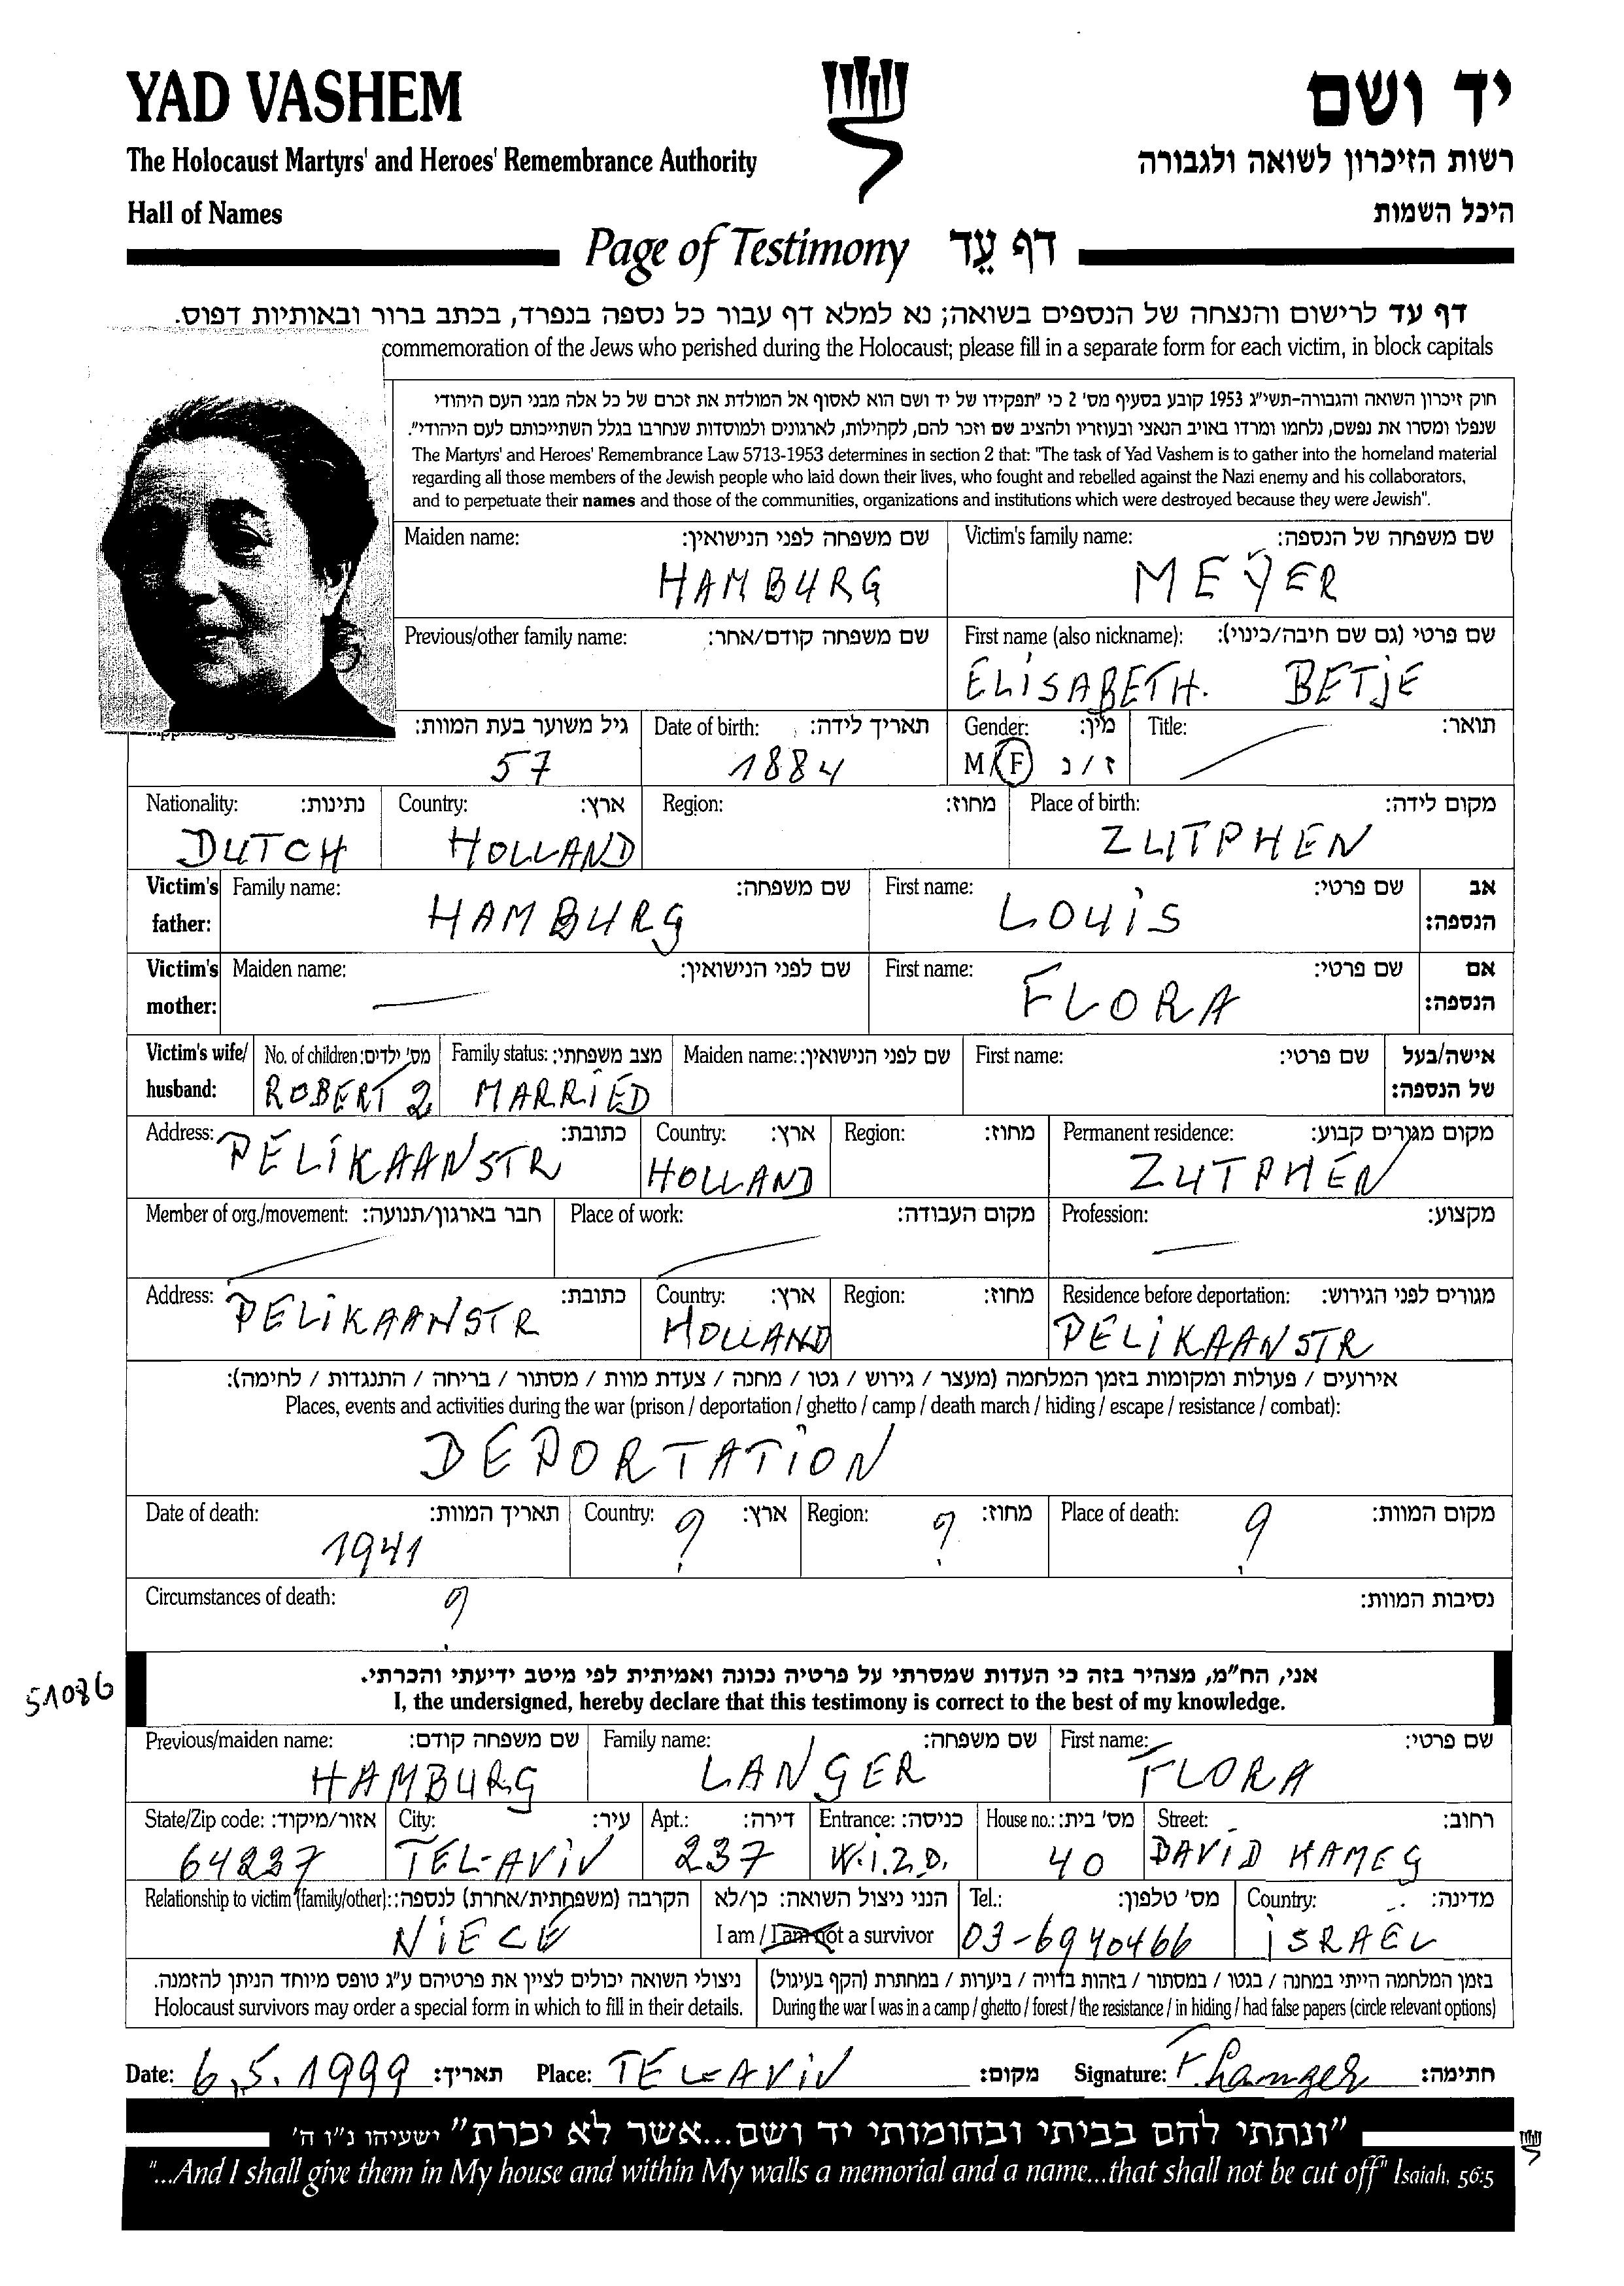 YAD VASHEM
יד ושם
The Holocaust Martyrs' and Heroes' Remembrance Authority
רשות הזיכרון לשואה ולגבורה
Hall of Names
היכל השמות
Page of Testimony דף עֵד
דף עד לרישום והנצחה של הנספים בשואה; נא למלא דף עבור כל נספה בנפרד, בכתב ברור ובאותיות דפוס.
commemoration of the Jews who perished during the Holocaust; please fill in a separate form for each victim, in block capitals
חוק זיכרון השואה והגבורה-תשי״ג 1953 קובע בסעיף מס' 2 כי ״תפקידו של יד ושם הוא לאסוף אל המולדת את זכרם של כל אלה מבני העם היהודי
שנפלו ומסרו את נפשם, נלחמו ומרדו באויב הנאצי ובעוזריו ולהציב שם וזכר להם, לקהילות, לארגונים ולמוסדות שנחרבו בגלל השתייכותם לעם היהודי״.
The Martyrs' and Heroes' Remembrance Law 5713-1953 determines in section 2 that: "The task of Yad Vashem is to gather into the homeland material
regarding all those members of the Jewish people who laid down their lives, who fought and rebelled against the Nazi enemy and his collaborators,
and to perpetuate their names and those of the communities, organizations and institutions which were destroyed because they were Jewish".
Maiden name: שם משפחה לפני הנישואין: Victim's family name: שם משפחה של הנספה:
HAMBURG MEŸER
Previous/other family name: שם משפחה קודם/אחר: First name (also nickname): שם פרטי (גם שם חיבה/כינוי):
ELISABETH. BETJE
גיל משוער בעת המוות: Date of birth: תאריך לידה: Gender: מין: Title: תואר:
57 1884 M/F ז/נ
Nationality: נתינות: Country: ארץ: Region: מחוז: Place of birth: מקום לידה:
DUTCH HOLLAND ZUTPHEN
Victim's Family name: שם משפחה: First name: שם פרטי: אב
father: HAMBURG LOUIS הנספה:
Victim's Maiden name: שם לפני הנישואין: First name: שם פרטי: אם
mother: FLORA הנספה:
Victim's wife/ No. of children: מס' ילדים: Family status: מצב משפחתי: Maiden name: שם לפני הנישואין: First name: שם פרטי: אישה/בעל
husband: ROBERT 2 MARRIED של הנספה:
Address: כתובת: Country: ארץ: Region: מחוז: Permanent residence: מקום מגורים קבוע:
PELIKAANSTR HOLLAND ZUTPHEN
Member of org./movement: חבר בארגון/תנועה: Place of work: מקום העבודה: Profession: מקצוע:
Address: כתובת: Country: ארץ: Region: מחוז: Residence before deportation: מגורים לפני הגירוש:
PELIKAANSTR HOLLAND PELIKAANSTR
אירועים / פעולות ומקומות בזמן המלחמה (מעצר / גירוש / גטו / מחנה / צעדת מוות / מסתור / בריחה / התנגדות / לחימה):
Places, events and activities during the war (prison / deportation / ghetto / camp / death march / hiding / escape / resistance / combat):
DEPORTATION
Date of death: תאריך המוות: Country: ארץ: Region: מחוז: Place of death: מקום המוות:
1941 ? ? ?
Circumstances of death: ? נסיבות המוות:
51086
אני, הח״מ, מצהיר בזה כי העדות שמסרתי על פרטיה נכונה ואמיתית לפי מיטב ידיעתי והכרתי.
I, the undersigned, hereby declare that this testimony is correct to the best of my knowledge.
Previous/maiden name: שם משפחה קודם: Family name: שם משפחה: First name: שם פרטי:
HAMBURG LANGER FLORA
State/Zip code: אזור/מיקוד: City: עיר: Apt.: דירה: Entrance: כניסה: House no.: מס' בית: Street: רחוב:
64237 TEL-AVIV 237 W.I.Z.O. 40 DAVID HAMEG
Relationship to victim (family/other): הקרבה (משפחתית/אחרת) לנספה: הנני ניצול השואה: כן/לא Tel.: מס' טלפון: Country: מדינה:
NIECE I am / I am not a survivor 03-6940466 ISRAEL
ניצולי השואה יכולים לציין את פרטיהם ע״ג טופס מיוחד הניתן להזמנה. בזמן המלחמה הייתי במחנה / בגטו / במסתור / בזהות בדויה / ביערות / במחתרת (הקף בעיגול)
Holocaust survivors may order a special form in which to fill in their details. During the war I was in a camp / ghetto / forest / the resistance / in hiding / had false papers (circle relevant options)
Date: 6.5.1999 תאריך: Place: TEL-AVIV מקום: Signature: F. Langer חתימה:
״ונתתי להם בביתי ובחומותי יד ושם...אשר לא יכרת״ ישעיהו נ״ו ה'
"...And I shall give them in My house and within My walls a memorial and a name...that shall not be cut off" Isaiah, 56:5